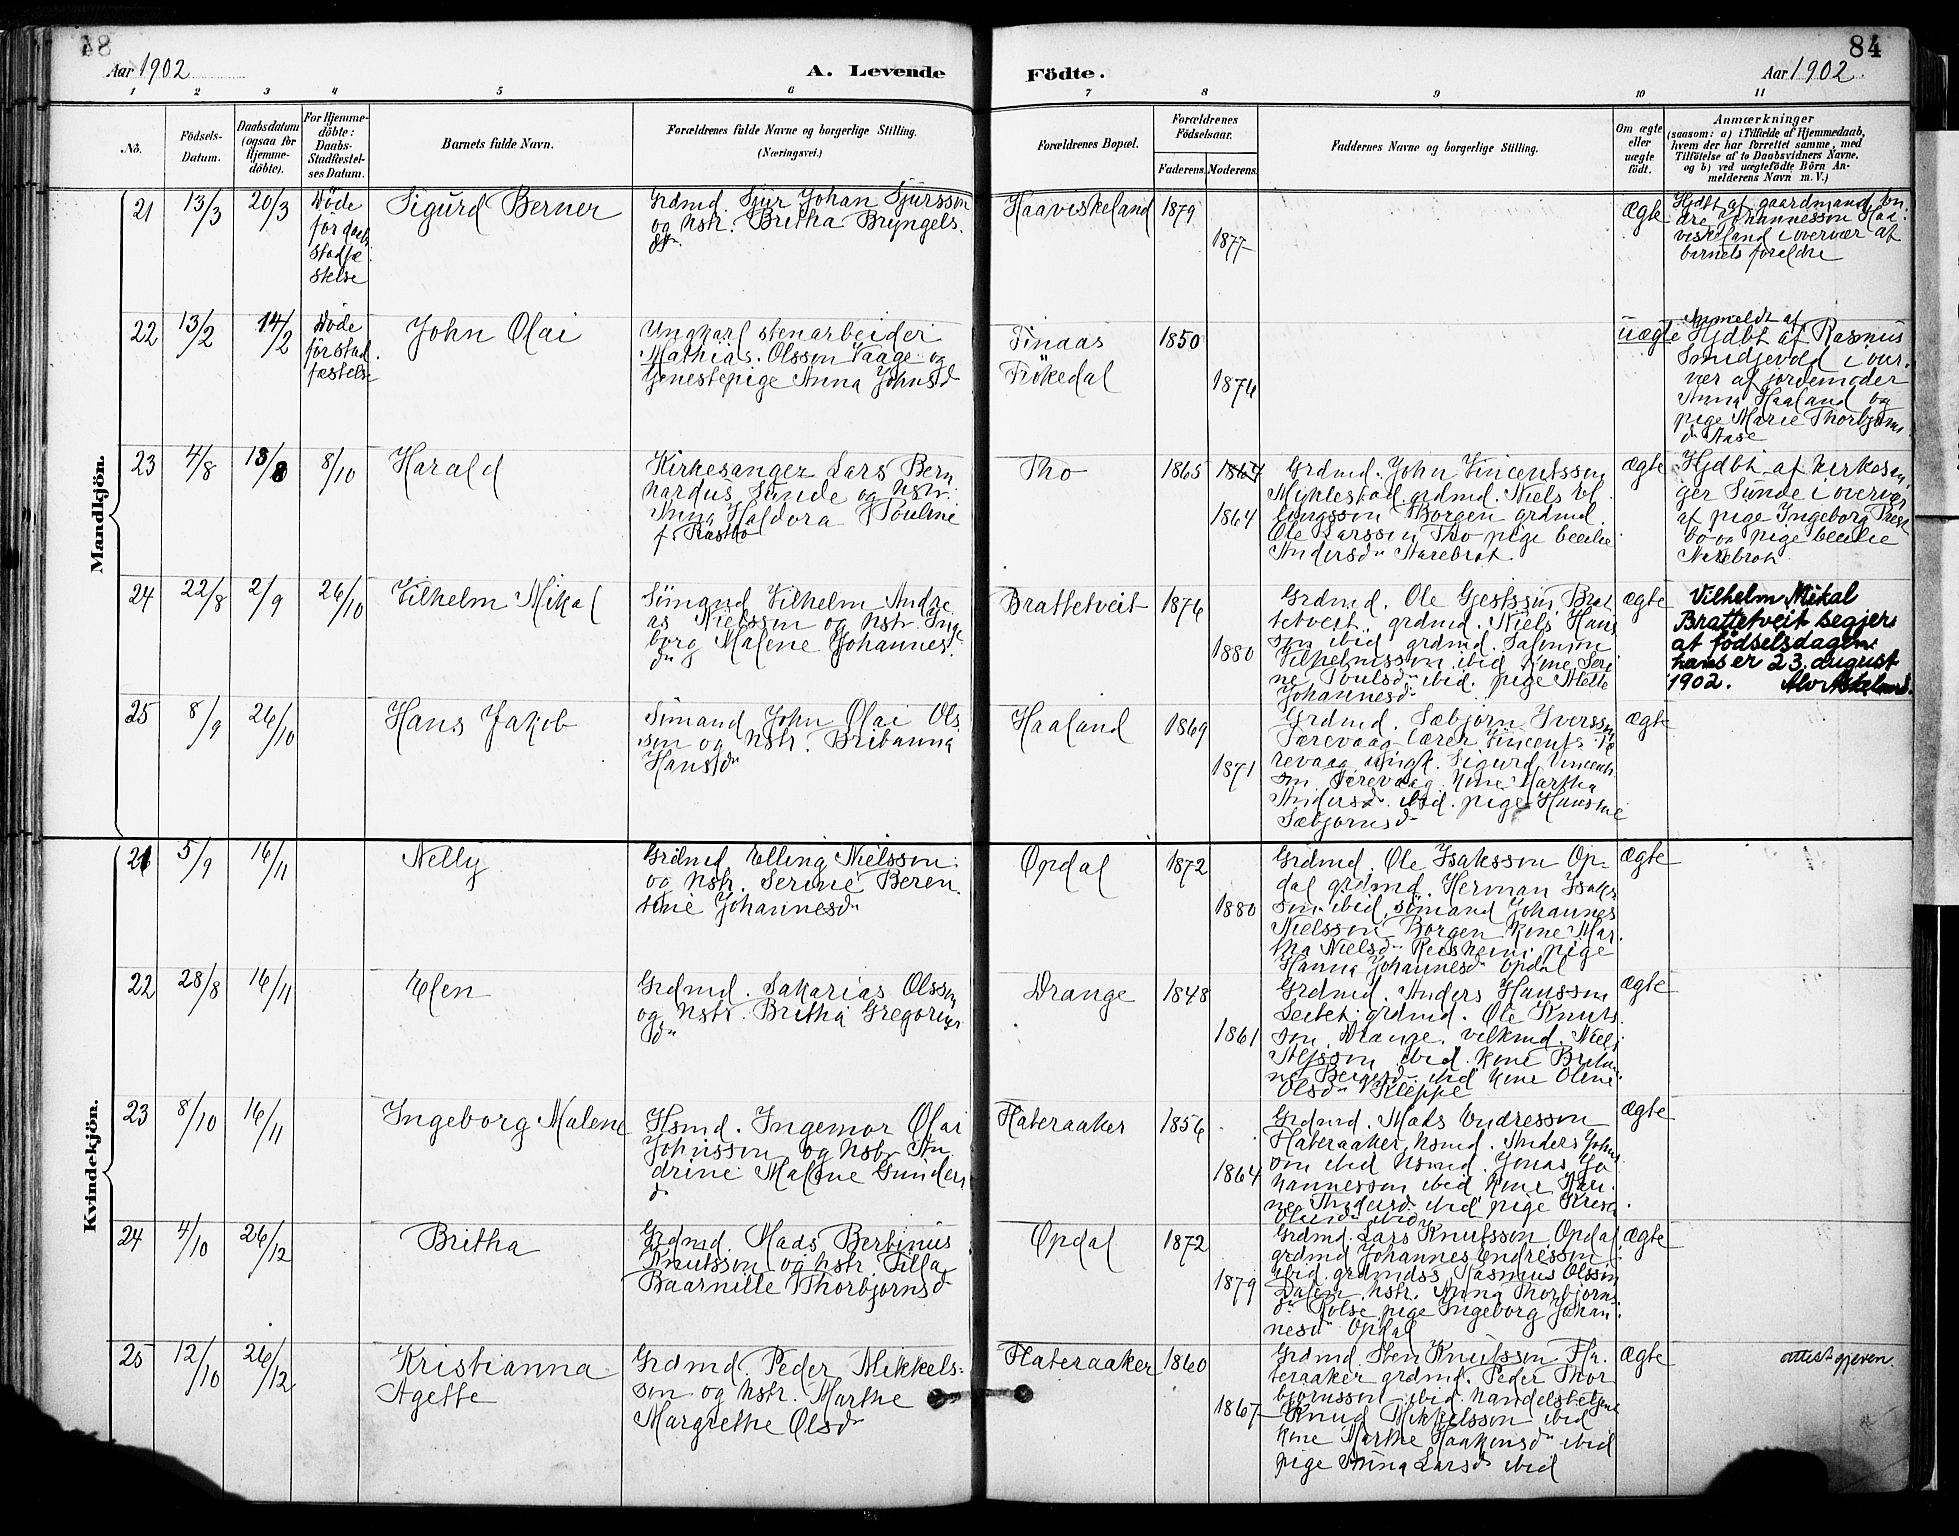 84
Aar 1902
A. Levende
Födte.
Aar 1902
1 2 3 4 5 6 7 8 9 10 11
No.
Födsels-
Datum.
Daabsdatum
(ogsaa för
Hjemme-
döbte).
For Hjemme-
döbte:
Daabs-
Stadfæstel-
ses Datum.
Barnets fulde Navn.
Forældrenes fulde Navne og borgerlige Stilling.
(Næringsvei.)
Forældrenes Bopæl.
Forældrenes
Födselsaar.
Faderens. Moderens.
Faddernes Navne og borgerlige Stilling.
Om ægte
eller
uægte
födt.
Anmærkninger
(saasom: a) i Tilfælde af Hjemmedaab,
hvem der har forrettet samme, med
Tilföielse af to Daabsvidners Navne.
og b) ved uægtefödte Börn An-
melderens Navn m. V.)
Mandkjön.
21 13/3 20/3
Døde
før daabs
stadfæ
stelse
Sigurd Berner
Grdmd. Sjur Johan Sjursson
og hstr. Britha Bryngels.
dtr
Haaviskeland
1879
1877
ægte
Hjdbt af gaardmand En
dre Johannesson Haa-
viskeland i overvær af
barnets forældre
22 13/2 14/2
Døde
før stad
fæstelse
John Olai
Ungkarl stenarbeider
Mathias Olsson Vaage og
tjenestepige Anna Johnsd
Finaas
Frøkedal
1850
1876
uægte
Anmeldt af
Hjdbt af Rasmus
Smidjevold i over
vær af jordemoder
Anna Haaland og
pige Marie Thorbjørns
dr Aase
23 4/8 13/8 8/10
Harald
Kirkesanger Lars Bern
hardus Sunde og hstr.
Anna Haldora Pouline
f.
Tho
1865 1864
1864
Grdmd. John Vincentsson
Myklestad grdmd. Niels El
lingsson Borgen grdmd.
Ole Larsson Tho pige Cecilie
Andersdr Aarebrot.
ægte
Hjdbt af kirkesan
ger Sunde i overvær
af pige Ingeborg Præst
bo og pige Cecilie
Aarebrot
24 22/8 2/9 26/10
Vilhelm Mikal
Sömand Vilhelm Andre
as Nielsson og hstr. Inge
borg Malene Johannes
dr
Brattetveit
1876
1880
Grdmd. Ole Gjestsson Brat
tetveit. grdmd. Niels Hans
son ibid grdmd. Salomon
Vilhelmsson ibid kone Seri
ne Poulsdr ibid. pige Alette
Johannesdr
ægte
Vilhelm Mikal
Brattetveit segjer
at födselsdagen
hans er 23. august
1902.
25 8/9 26/10
Hans Jakob
Sömand John Olai Ols
son og hstr. Britanna
Hansdr
Haaland
1869
1871
Grdmd. Sæbjørn Iversson
Særevaag lærer Vincents Sæ
revaag ungk. Sigurd Vincents
son Særevaag kone Martha
Andersdr ibid. pige Hansine
Sæbjørnsdr
ægte
Kvindekjön.
21 5/9 16/11
Nelly
Grdmd. Elling Nielsson
og hstr. Serine Beren
tine Johannesdr
Opdal
1872
1880
Grdmd. Ole Isaksson Op-
dal grdmd. Herman Isaks
son ibid. sömand Johannes
Nielsson Borgen kone Mar
tha Nielsdr Reisheim pige
Hanna Johannesdr Opdal
ægte
22 28/8 16/11
Elen
Grdmd. Sakarias Olsson
og hstr. Britha Gregorius
dr
Drange
1848
1861
Grdmd. Anders Hansson
Seitet grdmd. Ole Knuts
son Drange. vilkmd. Niels
ibid. kone Britan
ne Bergesdr ibid kone Oline
Olsdr Kleppe
ægte
23 8/10 16/11
Ingeborg Malene
Hsmd. Ingemor Olai
Johnsson og hstr. An
drine Malene Gunders
dr
Flateraaker
1856
1864
Grdmd. Mads Endresson
Flateraaker hsmd. Anders Johns
son ibid hsmd. Jonas Jo
hannesson ibid kone Kari
ne Andersdr ibid pige
ibid
ægte
24 4/10 26/12
Britha
Grdmd. Mads Bertinus
Knutsson og hstr. Silla
Baarnille Thorbjørnsd
Opdal
1872
1879
Grdmd. Lars Knutsson Opdal
grdmd Johannes Endresson
ibid. grdmdss Rasmus Olsson
Dalen hstr. Anna Thorbjørns
dr Rolse pige Ingeborg Johan
nesdr Opdal
ægte
25 12/10 26/12
Kristianna
Agette
Grdmd. Peder Mikkels-
son og hstr. Marthe
Margrethe Olsdr
Flateraaker
1860
1867
Grdmd. Sten Knutsson Fla
teraaker grdmd. Peder Thor
bjørnsson ibid handelsbetjent
Knud Mikkelsson ibid
kone Marthe Haakonsdr ibid
pige Anna Larsd ibid
ægte
attest gjeven